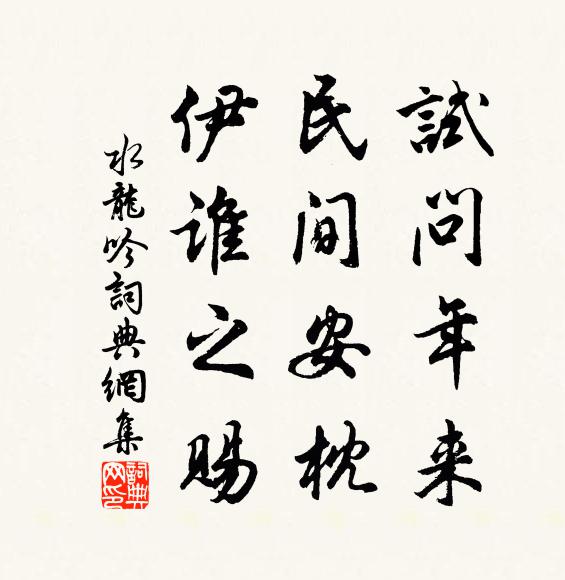 試問年来
民間安枕
伊誰之賜
水龍吟詞典網集
詞典网印